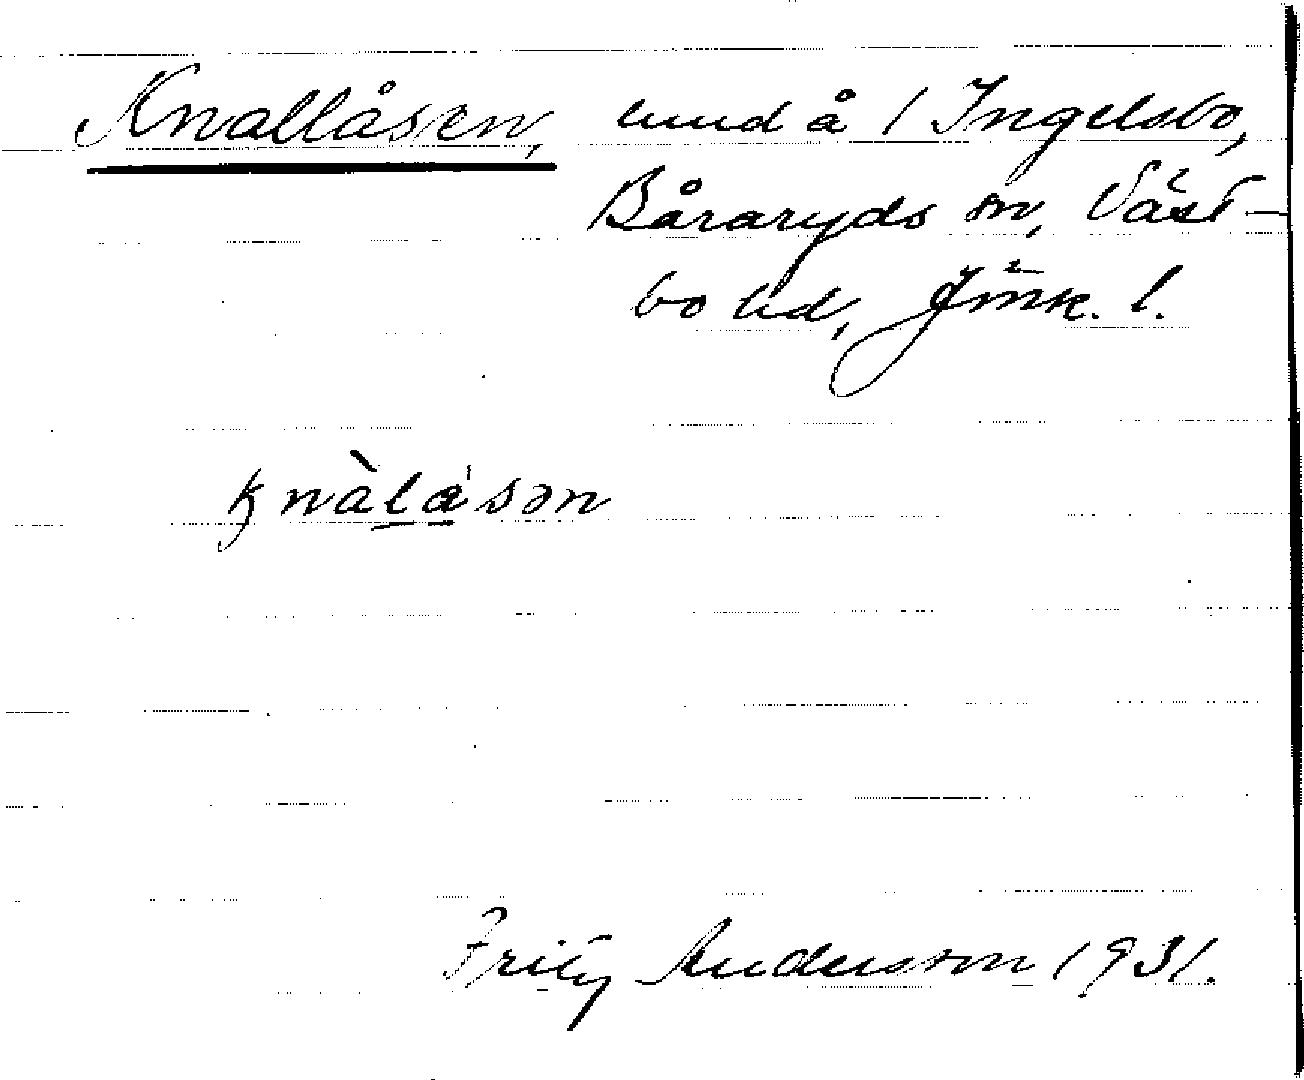 Knallåsen, lund å 1 Ingelsbo,
Båraryds sn, Väst-
bo hd, Jönk. l.
knàlåsən
Fritz Andersson 1931.